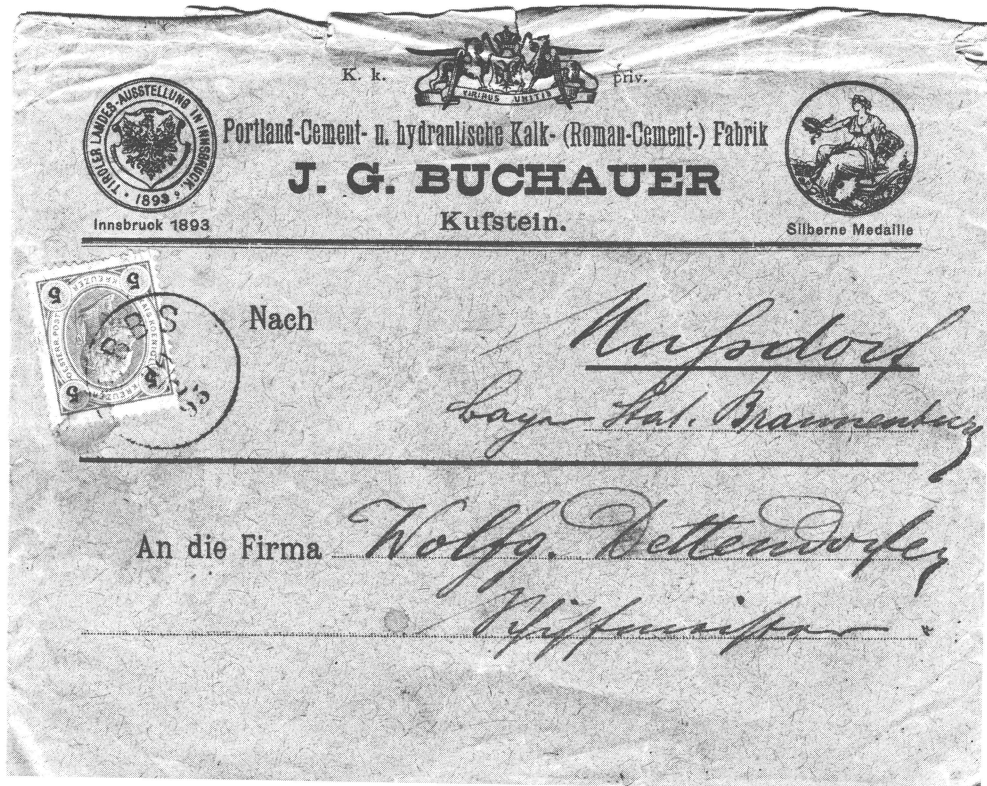 K. k. priv.
VIRIBUS UNITIS
TIROLER LANDES-AUSSTELLUNG IN INNSBRUCK
1893
Innsbruck 1893
Portland-Cement- u. hydraulische Kalk- (Roman-Cement-) Fabrik
J. G. BUCHAUER
Kufstein.
Silberne Medaille
5 KREUZER 5
5 KREUZER 5
Nach Nußdorf
bayr. Stat. Brannenburg
An die Firma Wolfg. Dettendorfer
Schiffmeister